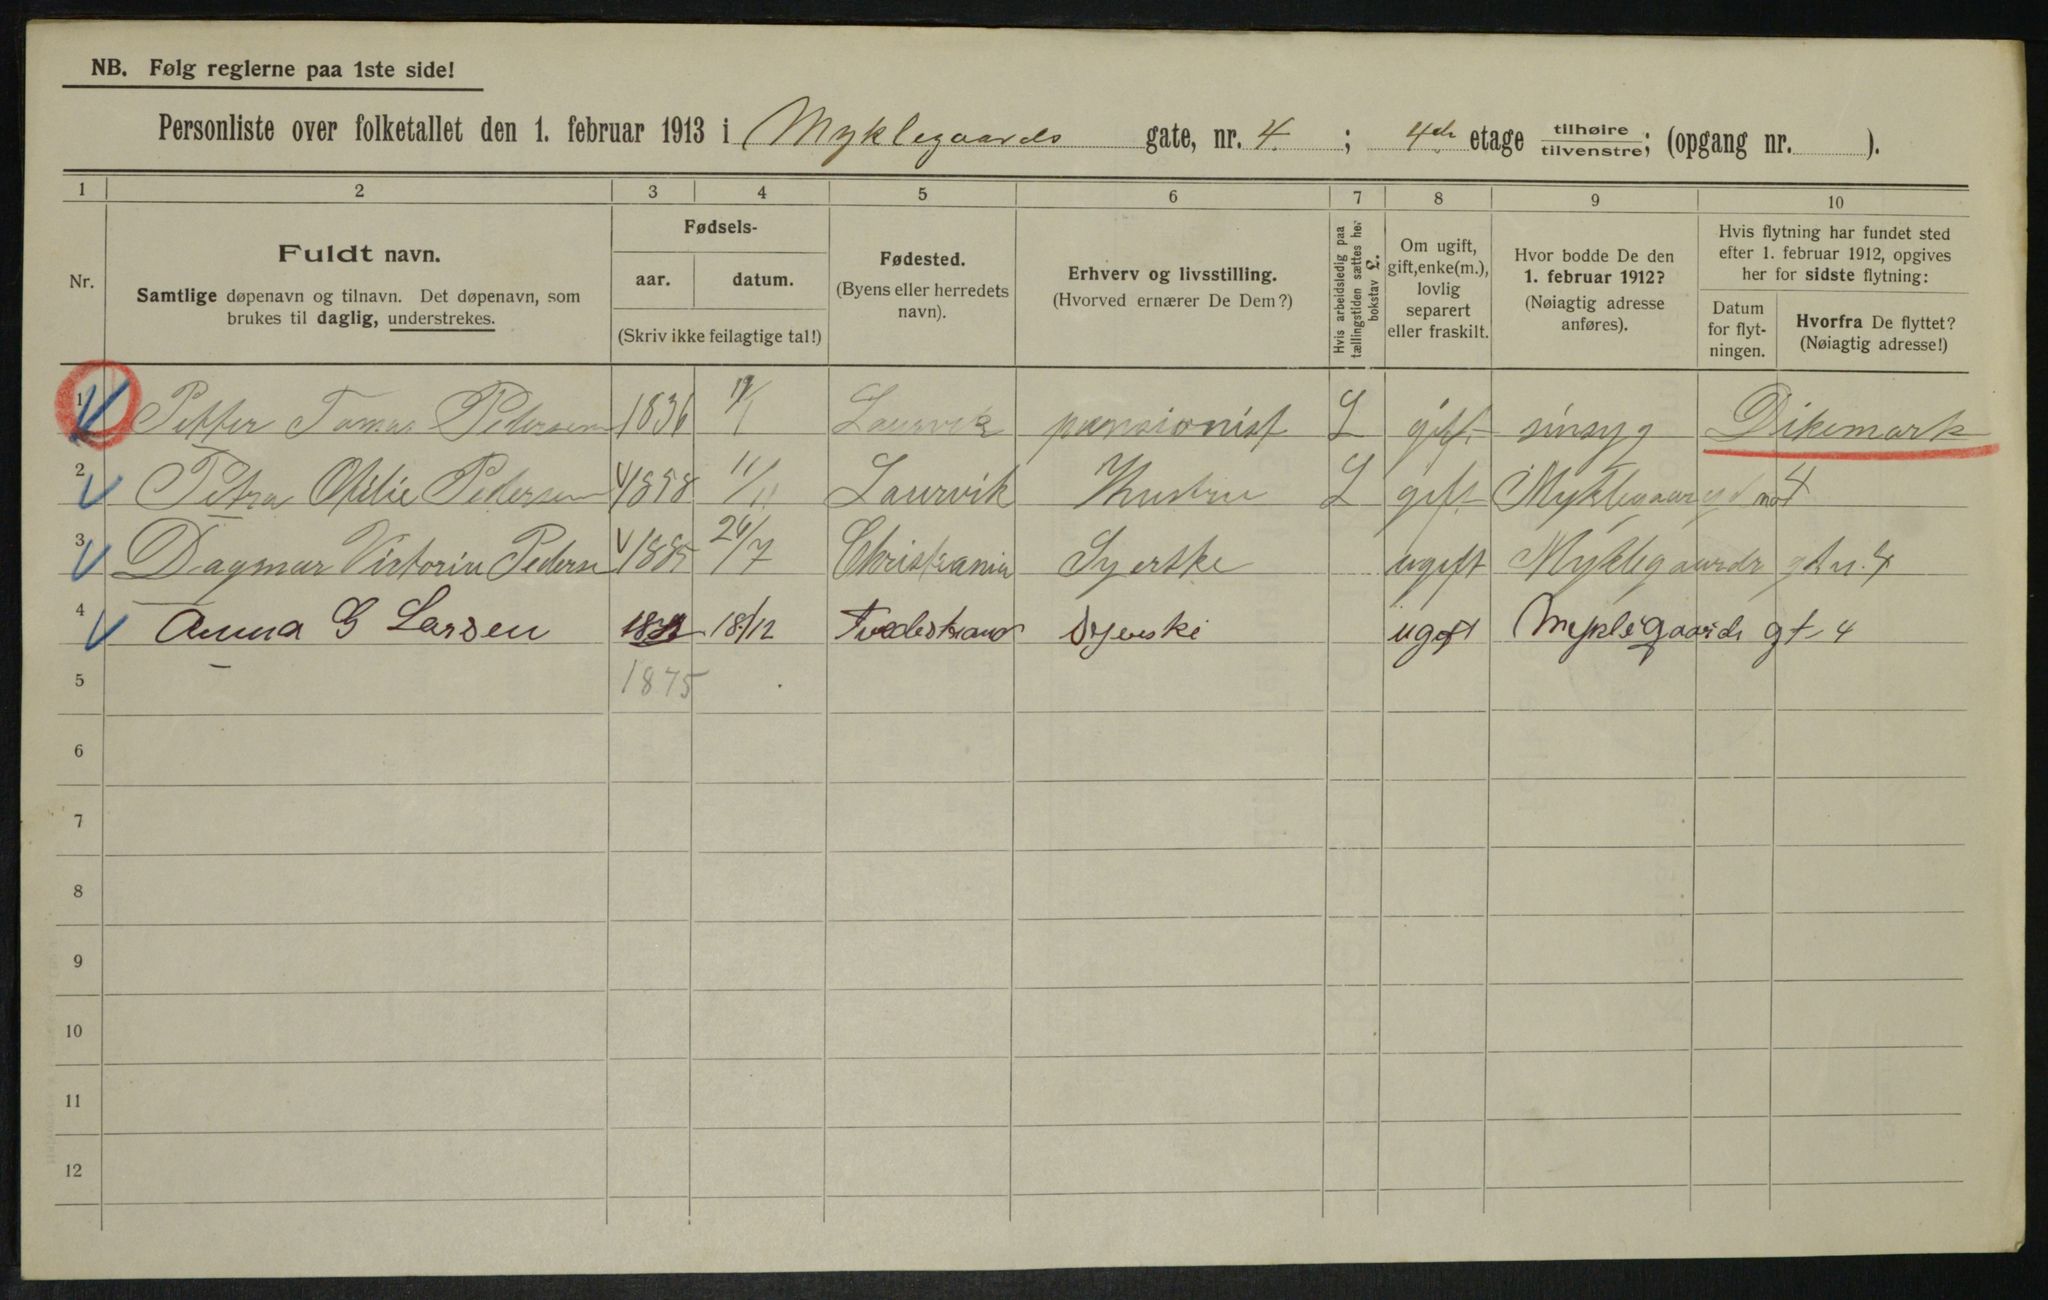 NB. Følg reglerne paa 1ste side!
Personliste over folketallet den 1. februar 1913 i Myklegaards gate, nr. 4. ; 4de etage tilhøire tilvenstre; (opgang nr. ).
1 2 3 4 5 6 7 8 9 10
Nr.
Fuldt navn.
Samtlige døpenavn og tilnavn. Det døpenavn, som
brukes til daglig, understrekes.
Fødsels-
aar. datum.
(Skriv ikke feilagtige tal!)
Fødested.
(Byens eller herredets
navn).
Erhverv og livsstilling.
(Hvorved ernærer De Dem?)
Hvis arbeidsledig paa
tællingstiden sættes her
bokstav L.
Om ugift,
gift, enke(m.),
lovlig
separert
eller fraskilt.
Hvor bodde De den
1. februar 1912?
(Nøiagtig adresse
anføres).
Hvis flytning har fundet sted
efter 1. februar 1912, opgives
her for sidste flytning:
Datum
for flyt-
ningen.
Hvorfra De flyttet?
(Nøiagtig adresse!)
1 Petter Tomas Pedersen 1836 1 Laurvik pensionist L gift sinsyg Dikemark
2 Petra Otilie Pedersen 11/11 Laurvik Hustru L gift Myklegaar 4
3 Dagmar Victoria Peders 1885 /7 Christiania Syerske ugift Myklegaards gt n. 4
4 Anna G Larsen 18/12 Tvedestrand Syerske ugift Myklegaards gt 4
5 1875
6
7
8
9
10
11
12